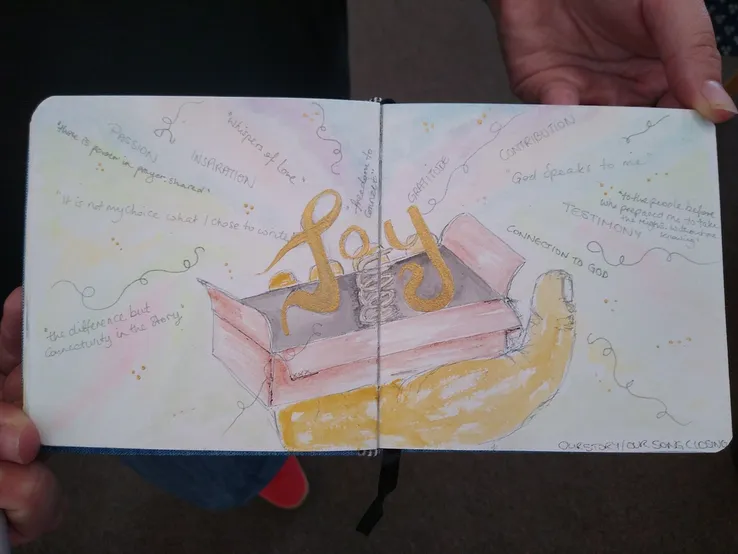 PASSION
"there is power in prayer shared"
INSPIRATION
"whispers of love"
"It is not my choice what I chose to write"
"the difference but
connectivity in the story"
"freedom to
connect"
Joy
GRATITUDE
CONTRIBUTION
"God speaks to me"
"to the people before
who prepared me to take
the Might without me
knowing"
TESTIMONY
CONNECTION TO GOD
OUR STORY/OUR SONG CLOSING